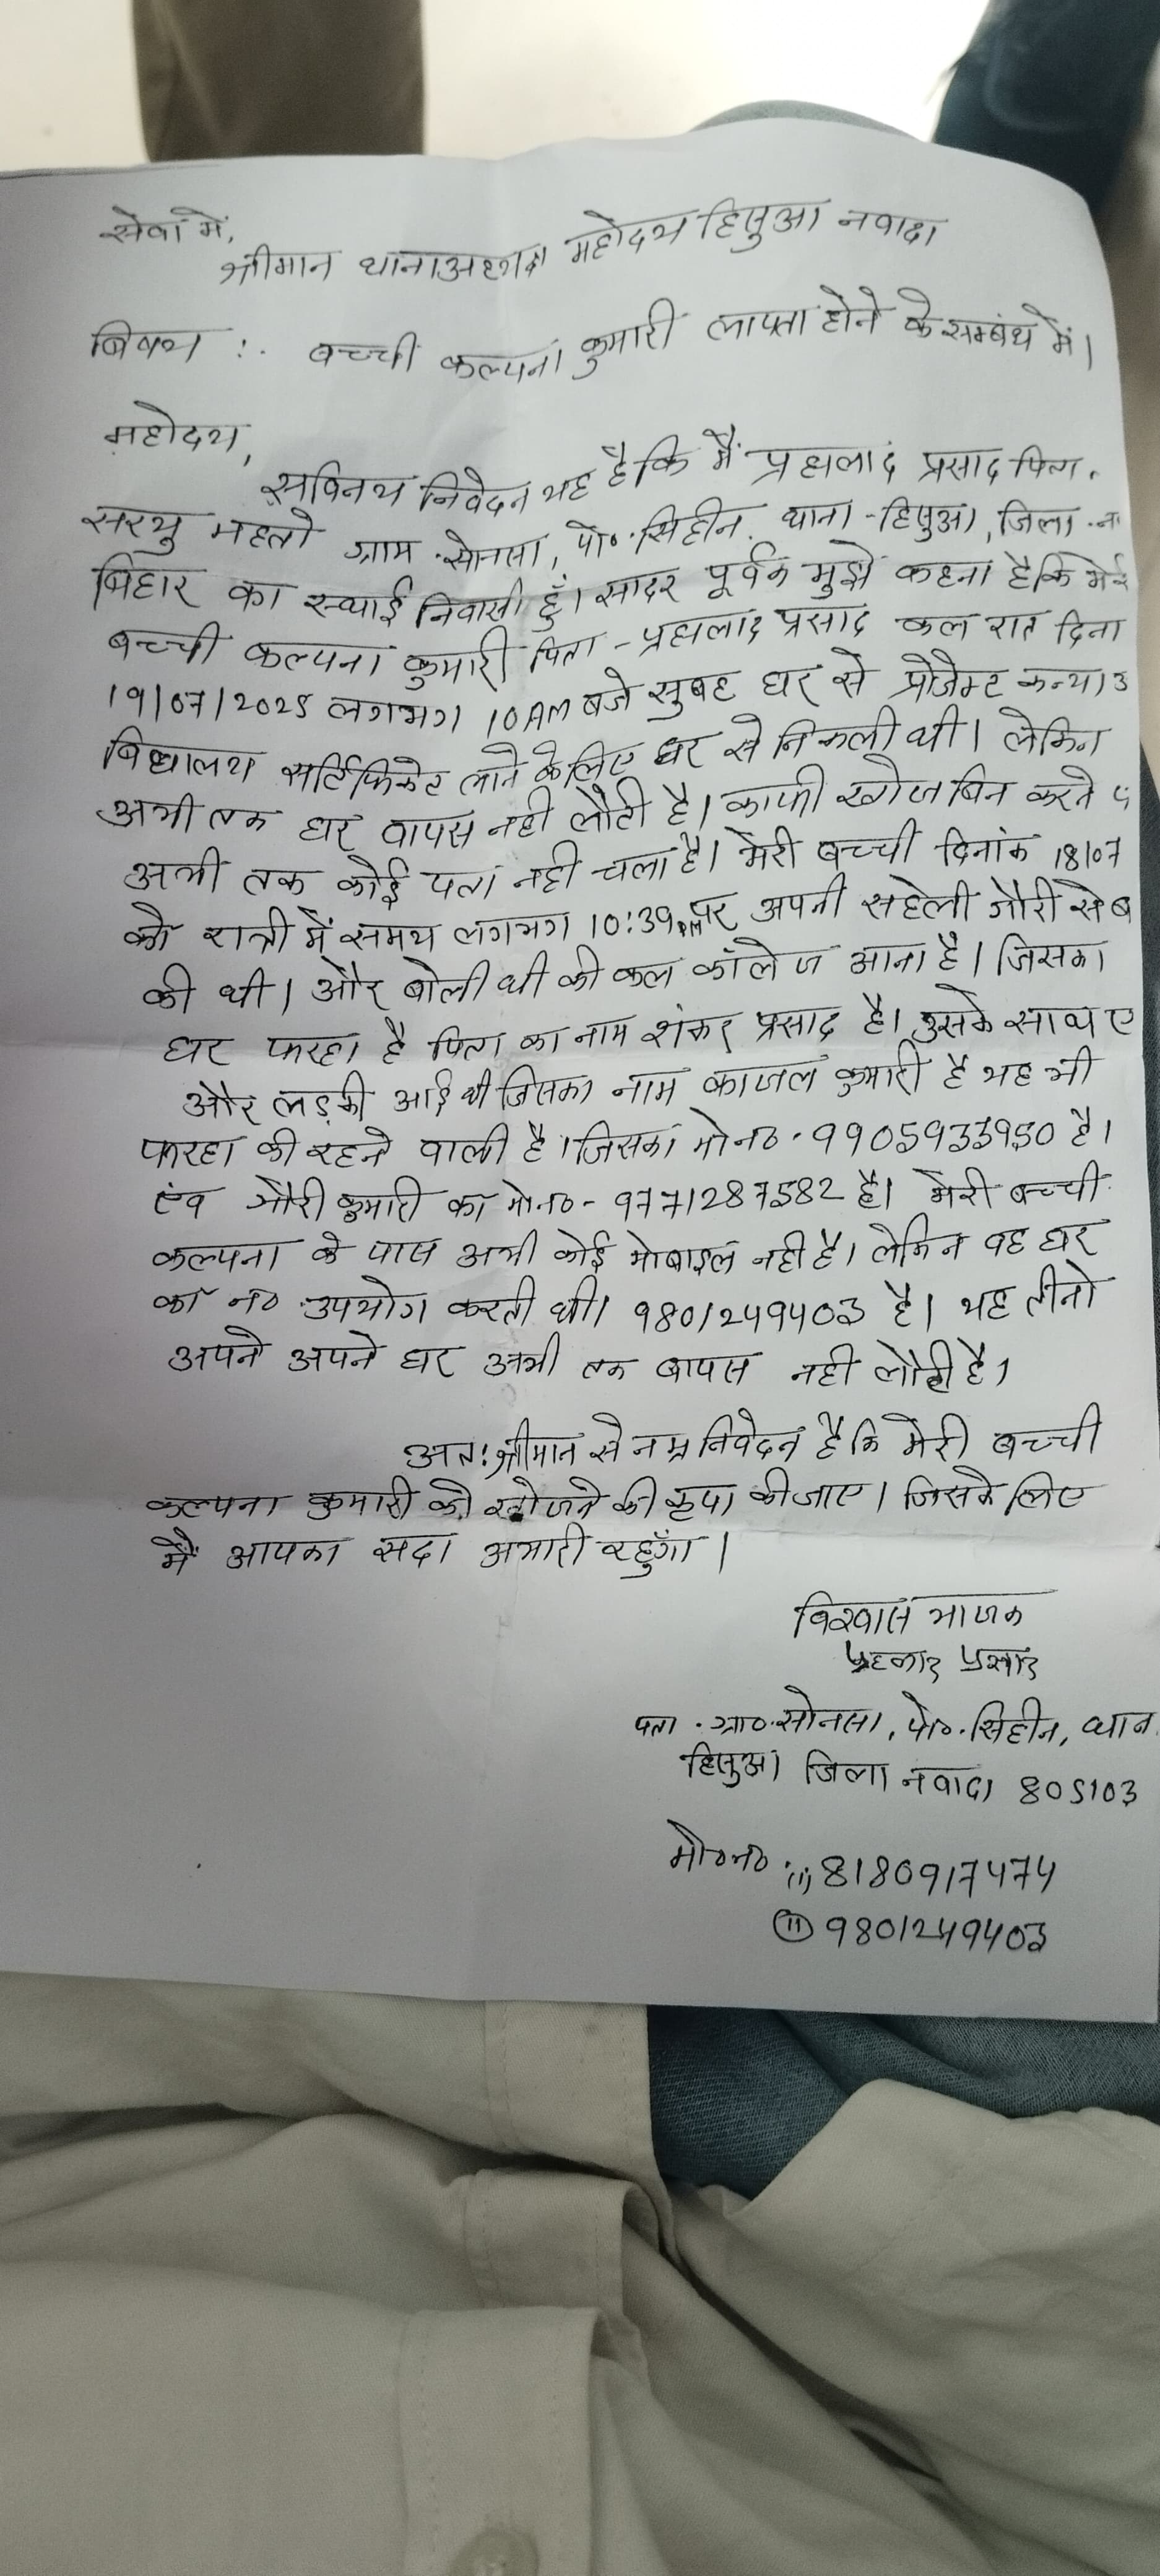 सेवा में,
श्रीमान थानाअध्यक्ष महोदय हिसुआ नवादा
बिषय :- बच्ची कल्पना कुमारी लापता होने के सम्बंध में।
महोदय,
सविनय निवेदन यह है कि मैं प्रहलाद प्रसाद पिता-
सरयु महतो ग्राम-सोनसा, पो०-सिहीन, थाना-हिसुआ, जिला-
बिहार का स्थाई निवासी हुँ। सादर पूर्वक मुझे कहना है कि
बच्ची कल्पना कुमारी पिता-प्रहलाद प्रसाद कल रात दिना
19/07/2025 लगभग 10 AM बजे सुबह घर से प्रोजैक्ट कन्या उ
विद्यालय सर्टिफिकेट लाने के लिए घर से निकली थी। लेकिन
अभी तक घर वापस नही लौटी है। काफी खोजबिन करने प
अभी तक कोई पता नही चला है। मेरी बच्ची दिनांक 18/07
को रात्री में समय लगभग 10:39 PM पर अपनी सहेली गौरी से ब
की थी। और बोली थी की कल कॉलेज आना है। जिसका
घर फरहा है पिता का नाम शंकर प्रसाद है। उसके साथ ए
और लड़की आई थी जिसका नाम काजल कुमारी है यह भी
फरहा की रहने वाली है। जिसका मो न०-9905933950 है।
एंव गौरी कुमारी का मो न०-9771287582 है। मेरी बच्ची
कल्पना के पास अभी कोई मोबाइल नही है। लेकिन वह घर
का न० उपयोग करती थी। 9801249403 है। यह तीनो
अपने अपने घर अभी तक बापस नही लौटी है।
अत: श्रीमान से नम्र निवेदन है कि मेरी बच्ची
कल्पना कुमारी को खोजने की कृपा की जाए। जिसके लिए
मैं आपका सदा अभारी रहुँगा।
विश्वास भाजक
प्रहलाद प्रसाद
पता - ग्रा०-सोनसा, पो०-सिहीन, थान
हिसुआ जिला नवादा 805103
मो०न० :(i) 8180917474
(ii) 9801249403